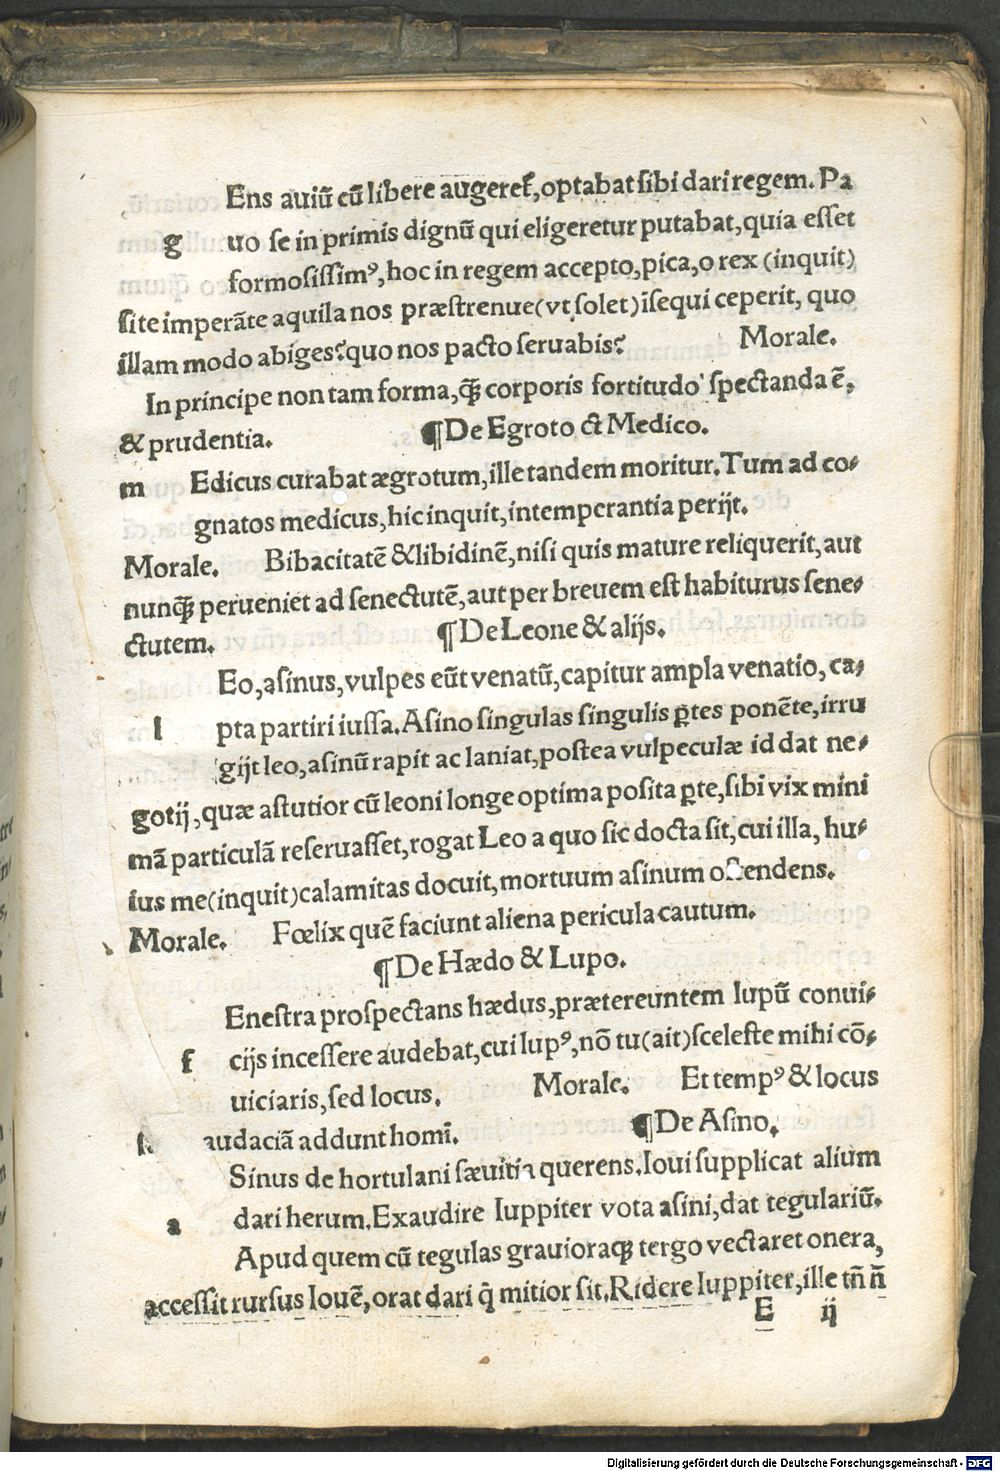 Ens auiũ cũ libere augeret̃, optabat sibi dari regem. Pa
g uo se in primis dignũ qui eligeretur putabat, quia esset
formosissimꝰ, hoc in regem accepto, pica, o rex (inquit)
si te imperãte aquila nos præstrenue (vt solet) ĩsequi ceperit, quo
illam modo abiges? quo nos pacto seruabis? Morale.
In principe non tam forma, q̃ꝫ corporis fortitudo spectanda ẽ,
& prudentia. ¶ De Egroto & Medico.
m Edicus curabat ægrotum, ille tandem moritur. Tum ad co-
gnatos medicus, hic inquit, intemperantia perijt.
Morale. Bibacitatẽ & libidinẽ, nisi quis mature reliquerit, aut
nunq̃ꝫ perueniet ad senectutẽ, aut per breuem est habiturus sene-
ctutem. ¶ De Leone & alijs.
Eo, asinus, vulpes eũt venatũ, capitur ampla venatio, ca-
l pta partiri iussa. Asino singulas singulis ꝑtes ponẽte, irru
gijt leo, asinũ rapit ac laniat, postea vulpeculæ id dat ne-
gotij, quæ astutior cũ leoni longe optima posita ꝑte, sibi vix mini
mã particulã reseruasset, rogat Leo a quo sic docta sit, cui illa, hu-
ius me (inquit) calamitas docuit, mortuum asinum ostendens.
Morale. Fœlix quẽ faciunt aliena pericula cautum.
¶ De Hædo & Lupo.
Enestra prospectans hædus, prætereuntem lupũ conui-
f cijs incessere audebat, cui lupꝰ, nõ tu (ait) sceleste mihi cõ-
uiciaris, sed locus. Morale. Et tempꝰ & locus
audaciã addunt homĩ. ¶ De Asino.
Sinus de hortulani sæuitia querens. Ioui supplicat alium
a dari herum. Exaudire Iuppiter vota asini, dat tegulariũ.
Apud quem cũ tegulas grauioraqꝫ tergo vectaret onera,
accessit rursus Iouẽ, orat dari q̃ mitior sit. Ridere Iuppiter, ille tñ ñ
E ij
Digitalisierung gefördert durch die Deutsche Forschungsgemeinschaft - DFG